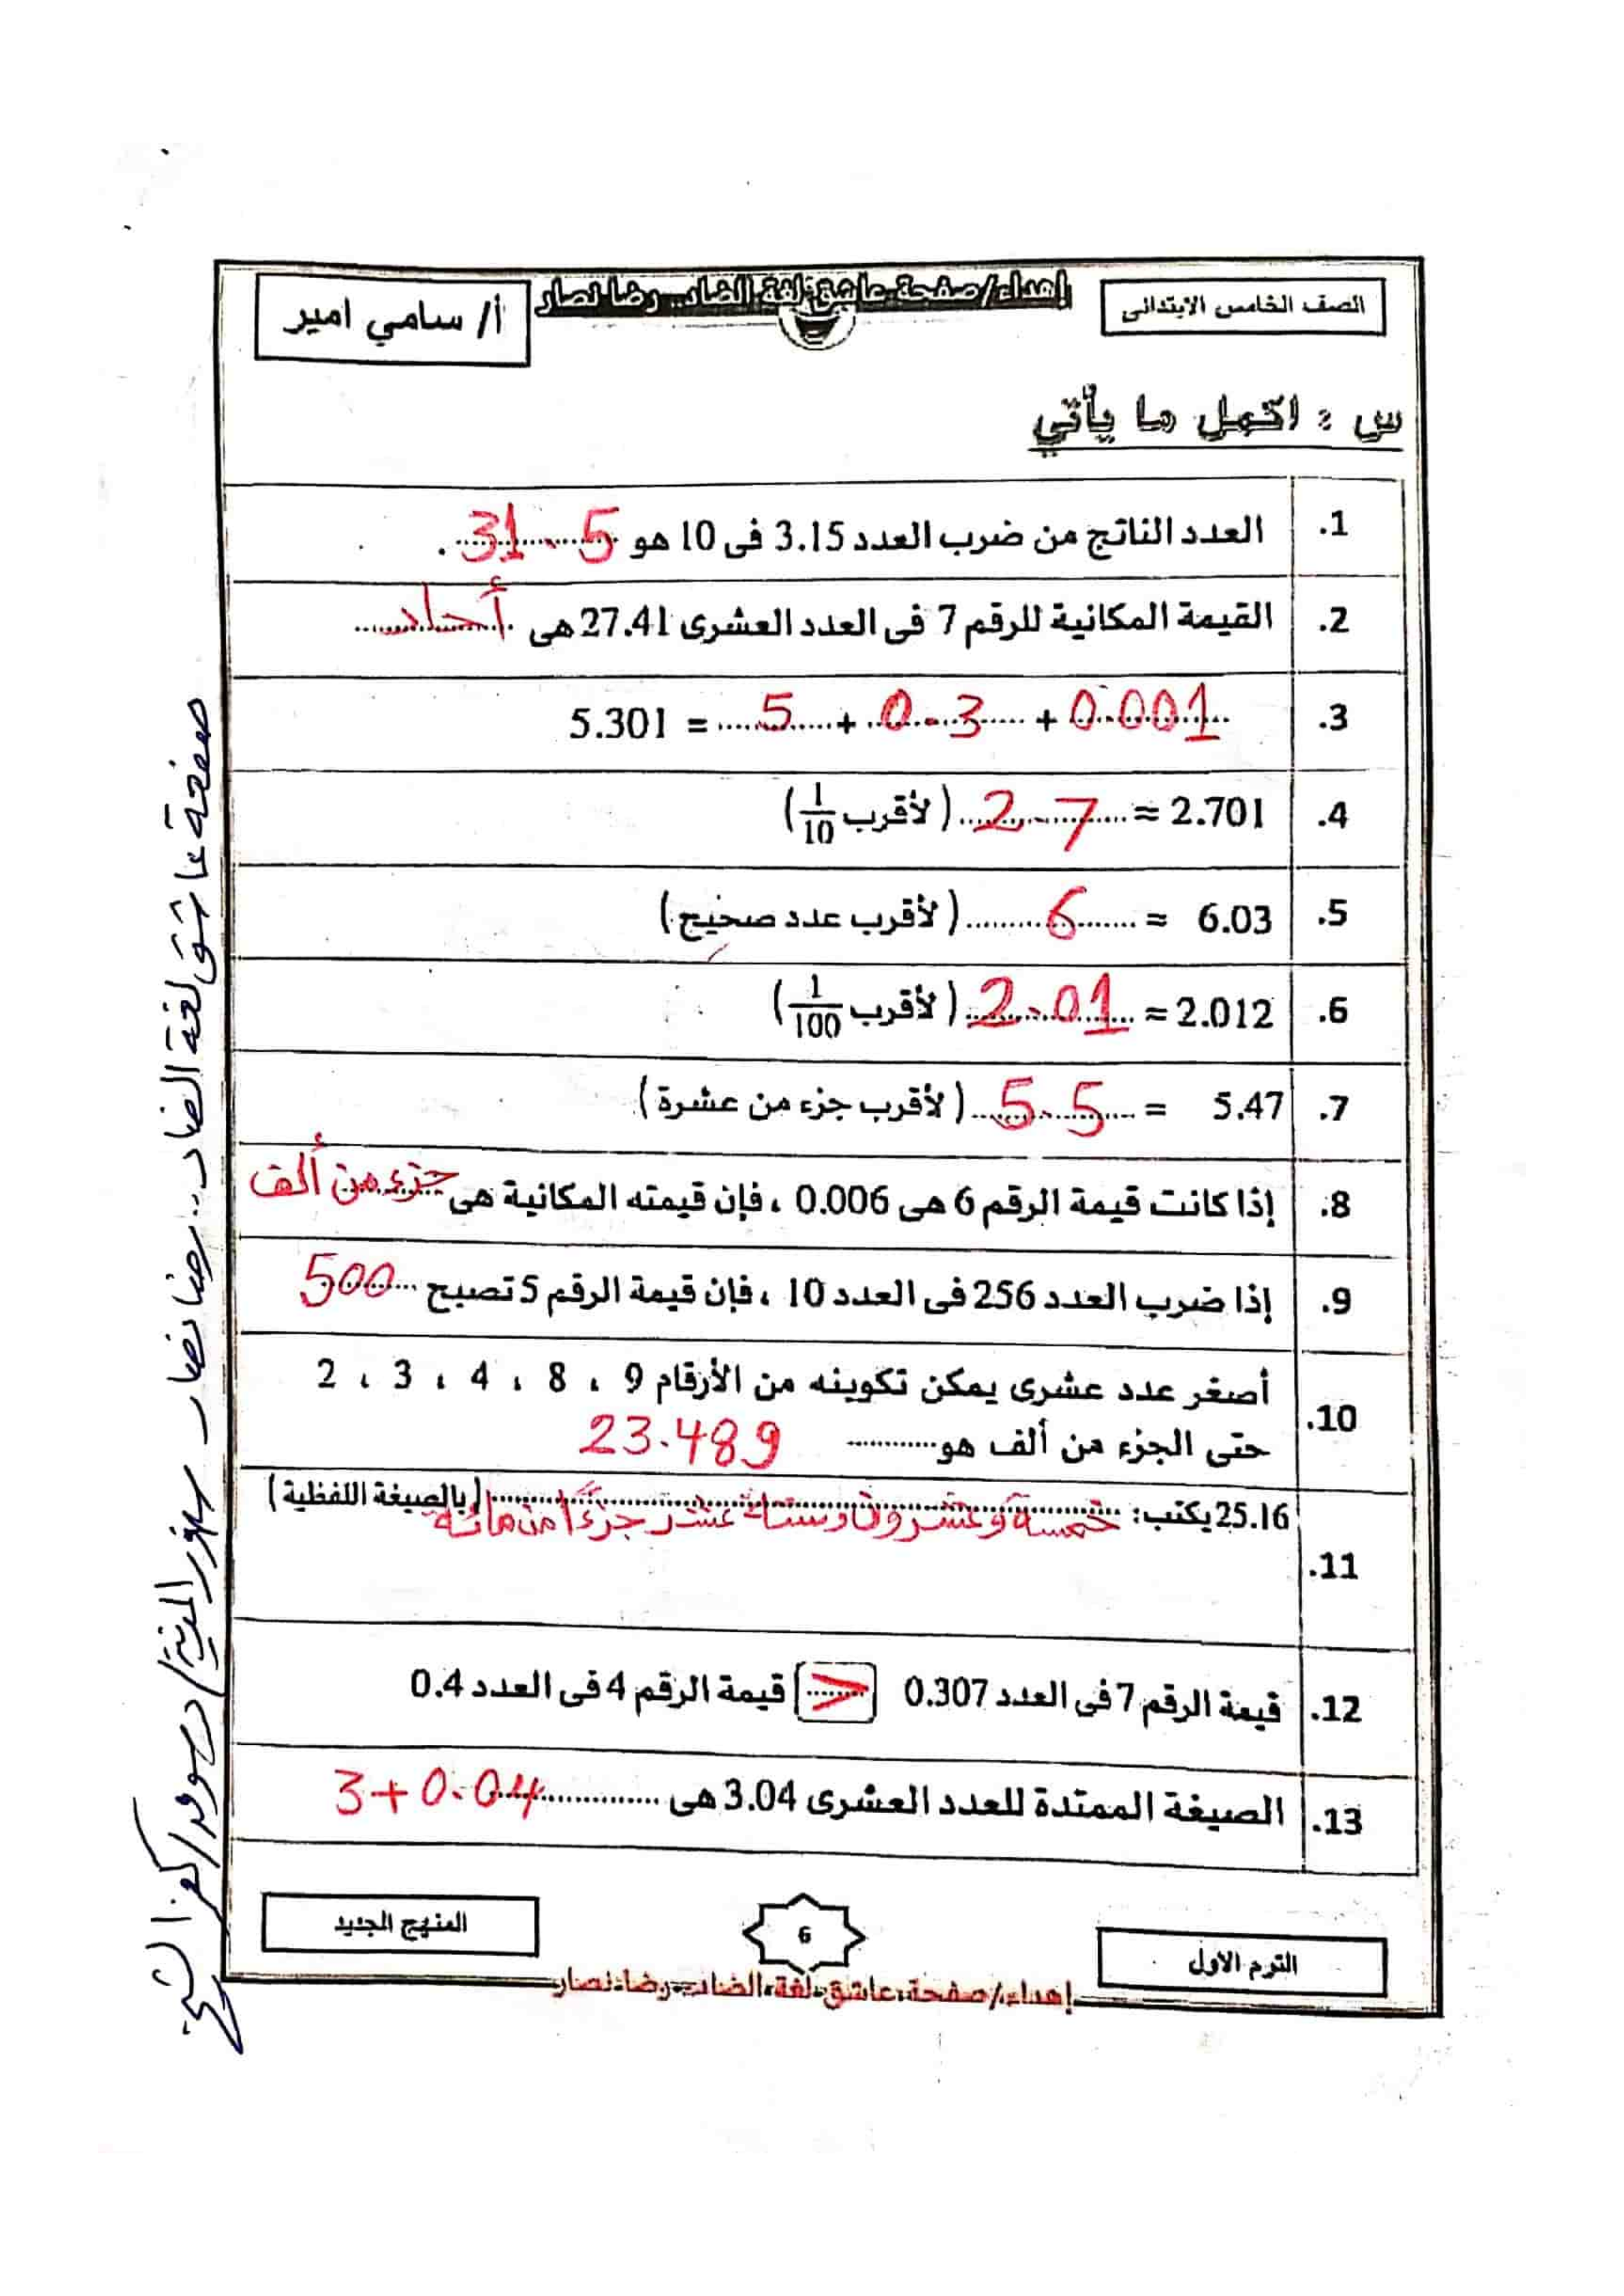 الصف الخامس الابتدائى
إهداء/صفحة عاشق لغة الضاد.. رضا نصار
أ/ سامي امير
س : اكمل ما يأتي
1. العدد الناتج من ضرب العدد 3.15 فى 10 هو 31.5 .
2. القيمة المكانية للرقم 7 فى العدد العشرى 27.41 هى أحاد
3. 5.301 = 5 + 0.3 + 0.001
4. 2.701 ≈ 2.7 ( لأقرب 1/10 )
5. 6.03 ≈ 6 ( لأقرب عدد صحيح )
6. 2.012 ≈ 2.01 ( لأقرب 1/100 )
7. 5.47 = 5.5 ( لأقرب جزء من عشرة )
8. إذا كانت قيمة الرقم 6 هى 0.006 ، فإن قيمته المكانية هى جزء من ألف
9. إذا ضرب العدد 256 فى العدد 10 ، فإن قيمة الرقم 5 تصبح 500
10. أصغر عدد عشرى يمكن تكوينه من الأرقام 9 ، 8 ، 4 ، 3 ، 2
حتى الجزء من ألف هو 23.489
11. 25.16 يكتب: خمسة وعشرون وستة عشر جزءًا من مائة (بالصيغة اللفظية)
12. قيمة الرقم 7 فى العدد 0.307 < قيمة الرقم 4 فى العدد 0.4
13. الصيغة الممتدة للعدد العشرى 3.04 هى 3+0.04
الترم الاول
6
المنهج الجديد
إهداء/صفحة عاشق لغة الضاد رضا نصار
صفحة عاشق لغة الضاد.. رضا نصار